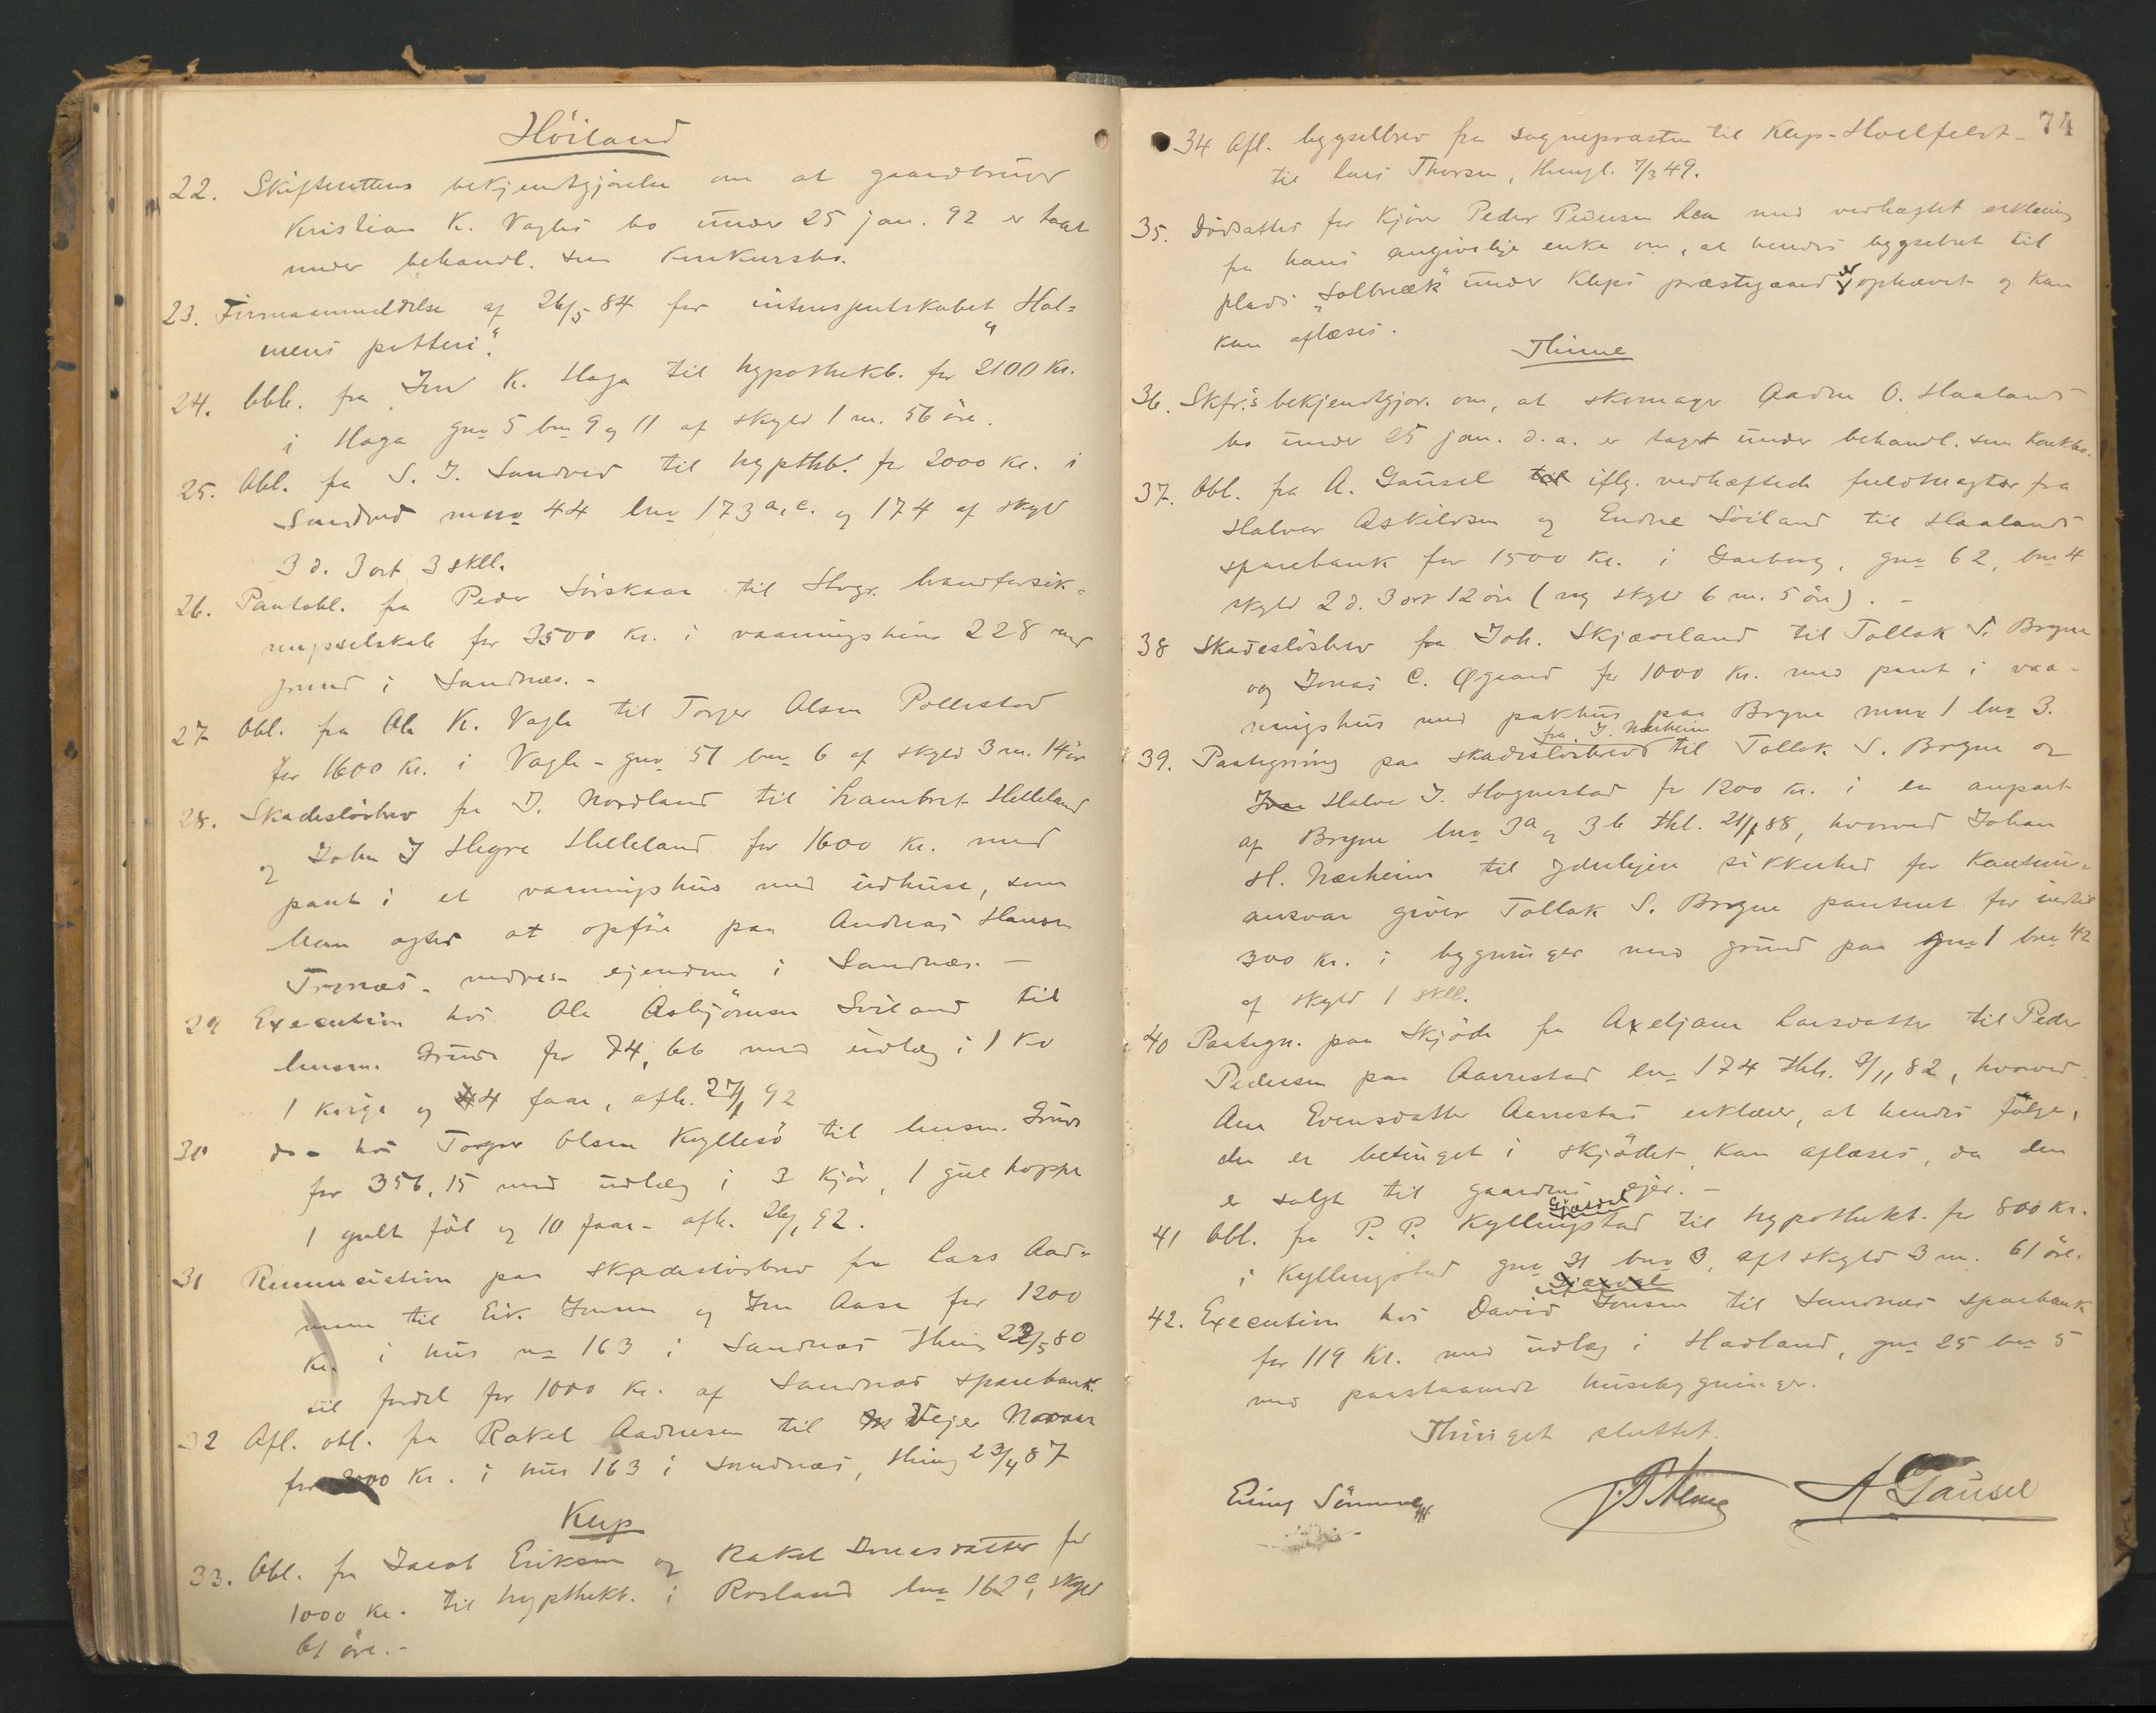 Höiland
22. Skifterettens bekjendtgjørelse om at gaardbruger
Kristian K. Vagles bo under 25 jan. 92 er taget
under behandl. som Konkursbo.
23. Firmaanmeldelse af 26/5 84 for interessentskabet „Hol-
mens potteri“.
24. Obl. fra K. Haga til hypothekb. for 2100 Kr.
i Haga gno 5 bno 9 og 11 af skyld 1 m. 56 öre.
25. Obl. fra S. J. Sandved til hypthb. for 2000 Kr. i
Sandved mno 44 lno 173 a, c. og 174 af skyld
3 d. 3 ort 3 skll.
26. Pantobl. fra Peder Sörskaar til Norges brandforsik-
ringsselskab for 3500 Kr. i vaaningshus 228 med
grund i Sandnæs. -
27 Obl. fra Ole K. Vagle til Torger Olsen Pollestad
for 1600 Kr. i Vagle - gno 51 bno 6 af skyld 3 m. 14 öre
28. Skadeslösbrev fra J. Nordland til Lambret Helleland
og John J Hegre Helleland for 1600 Kr. med
pant i et vaaningshus med udhuse, som
han agter at opföre paa Andreas Hansen
ejendom i Sandnæs. -
29 Execution hos Ole Asbjörnsen Soiland til
lensm. Grude for 74,66 med udlæg i 1 Ko
1 kvige og 4 faar, afh. 27/1 92
30 do - hos Torger Olsen Kyllesö til lensm. Grude
for 356,15 med udlæg i 3 kjör, 1 gul hoppe
1 gult föl og 10 faar - afh. 26/1 92.
31 Renunciation paa skadeslösbrev fra Lars Aad-
nesen til Eik. Jonsen og Jon Aase for 1200
Kr. i hus no 163 i Sandnæs Thing 22/5 80
til fordel for 1000 Kr. af Sandnæs sparebank.
32 Afl. obl. fra Rakel Aadnesen til Vejer
for 2000 Kr. i hus 163 i Sandnæs, thing 23/4 87
Klep
33. Obl. fra Jacob Eriksen og Rakel Jonasdatter for
1000 Kr. til hypthekb. i Rosland lno 162 c, skyld
61 öre. -
74
34 Afl. bygselbrev fra sogneprasten til Klep -
til Lars Thorsen, thingl. 7/3 49.
35. Dödsattest for Kjöre Peder Pedersen med vedhæftet erklæring
fra hans angivelige enke om, at hendes bygselret til
plads „Solbræk“ under Kleps præstegaard er ophævet og kan
kan aflæses.
Thime
36. Skfr.s bekjendtgjør. om, at skomager Aadne O. Haalands
bo under 25 jan. d. a. er taget under behandl. som Konkbo.
37. Obl. fra A. Gausel til iflg. vedhæftede fuldmagter fra
Halvor Askildsen og Endre Söiland til Haalands
sparebank for 1500 Kr. i Garborg, gno 62, bno 4
skyld 2 d. 3 ort 12 öre (ny skyld 6 m. 5 öre). -
38 Skadeslösbrev fra Joh. Skjæveland til Tollak S. Bryne
og Jonas C. Øgaard for 1000 Kr. med pant i vaa-
ningshus med pakhus paa Bryne mno 1 lno 3.
fra J. Nærheim
39. Paategning paa skadeslösbrev til Tollak S. Bryne og
Halvor J. Hognestad for 1200 Kr. i en anpart
af Bryne lno 3a og 3b thl. 21/1 88, hvorved Johan
H. Nærheim til yderligere sikkerhed for Kautions-
ansvar giver Tollak S. Bryne panteret for indtil
300 Kr. i bygninger med grund paa gno 1 bno 42
af skyld 1 skll.
40 Paategn. paa skjöde fra Axeljane Larsdatter til Peder
Pedersen paa Aarrestad lno 174 thl. 9/11 82, hvorved
Ane Evensdatter Aarrestad erklærer, at hendes fölge,
der er betinget i skjödet, kan aflæses, da den
er solgt til gaardens ejer. -
Gjesdal
41 Obl. fra P. P. Kyllingstad til hypothekb. for 800 Kr.
i Kyllingstad gno 31 bno 3, aft skyld 3 m. 61 öre.
Gjesdal
42. Execution hos David Jonsen til Sandnæs sparebank
for 119 Kr. med udlæg i Hadland, gno 25 bno 5
med paastaaende husebygninger.
Thinget sluttet.
A Gausel